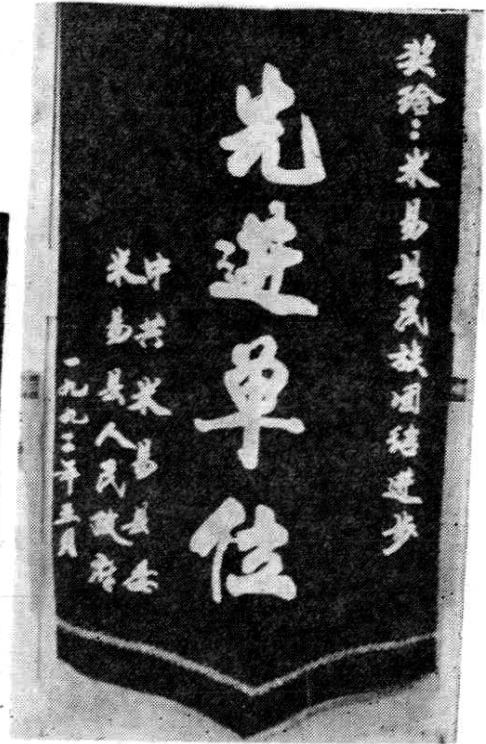 奖给：米易县民族团结进步
先进单位
中共米易县委
米易县人民政府
一九九二年五月